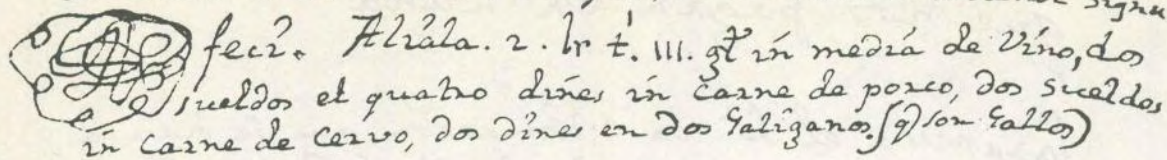 signu
fecit. Aliala. 2. lr t. III. gt in media de Vino, dos
sueldos et quatro dines in carne de porco, dos sueldos
in carne de cervo, dos dines en dos Galiganos. (q son Gallos)